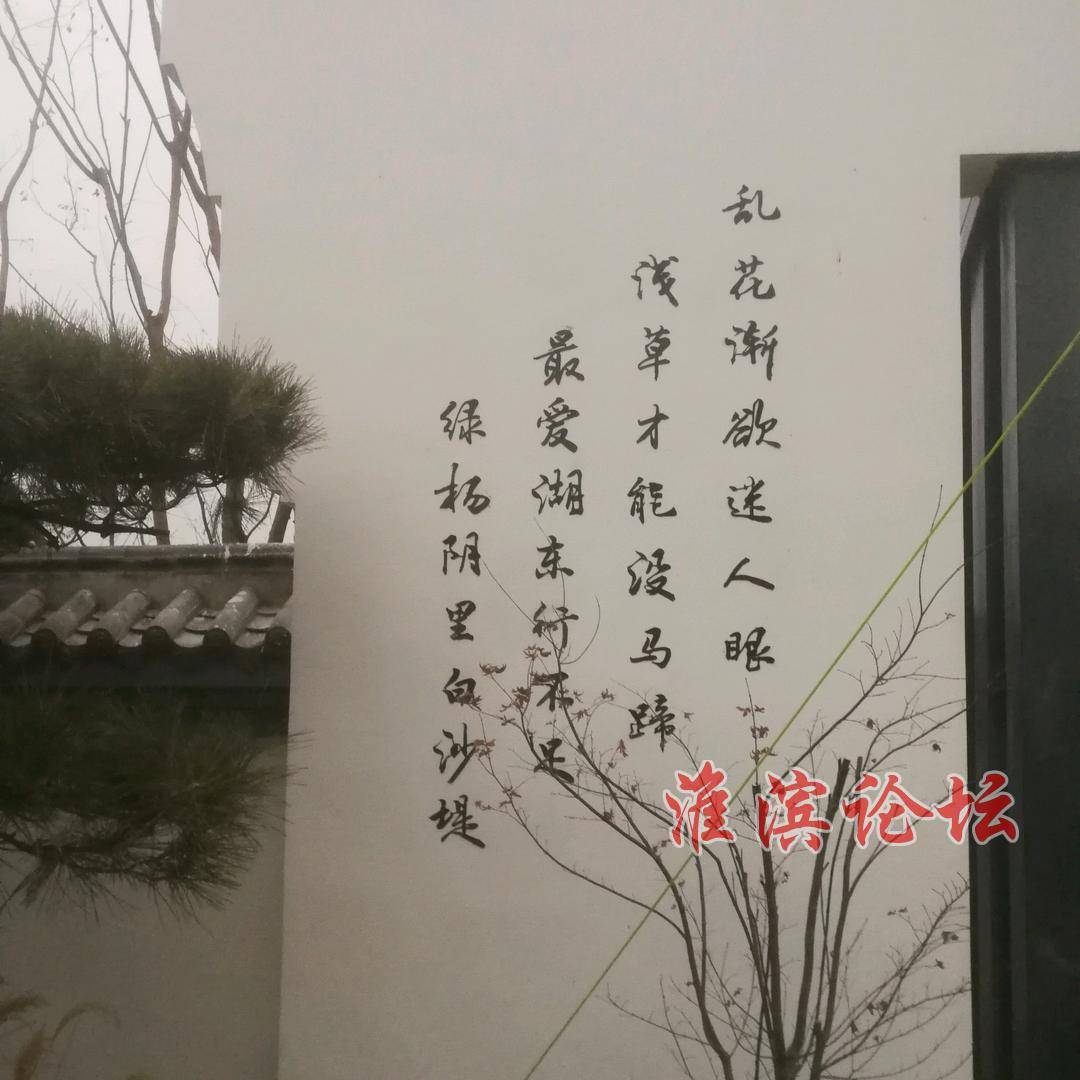 乱花渐欲迷人眼
浅草才能没马蹄
最爱湖东行不足
绿杨阴里白沙堤
淮滨论坛